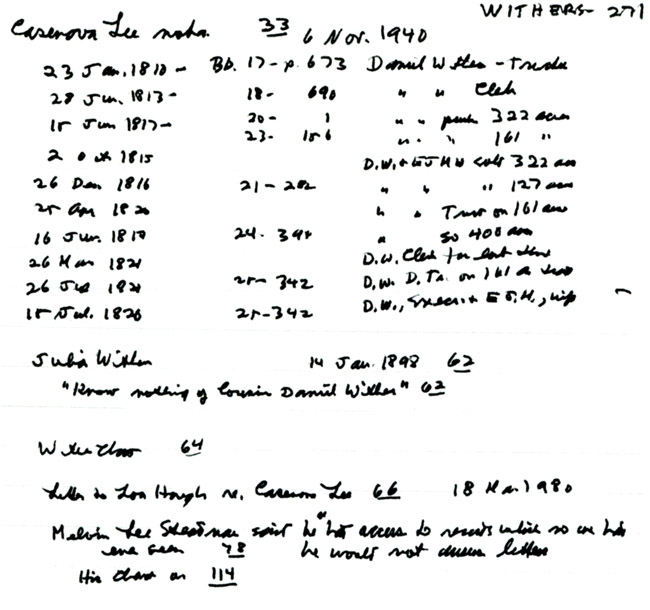 WITHERS 271
Casenova Lee notes. 33 6 Nov. 1940
23 Jan. 1810 - Bb. 17 - p. 673 Daniel Withers - Trustee
28 Jun. 1813 - 18 - 690 " " Clerk
15 Jun 1817 - 20 - 1 " " purch 322 acres
23 - 156 " " 161 "
2 Oct 1815 D.W. + E J M W sold 322 ac
26 Dec 1816 21 - 282 " " " 127 acres
25 Apr 1820 " " Trust on 161 acres
16 Jun. 1819 24 - 394 " So 400 acres
26 Mar 1821 D.W. Clerk for
26 1821 25 - 342 D.W. D. Tr. on 161 a
15 Jul. 1826 25 - 342 D.W., + E J. M., wife
Julia Withers 14 Jan. 1898 62
"Know nothing of Cousin Daniel Withers" 62
Withers 64
Letter to Lon Hough re. Casenova Lee 66 18 Mar 1980
Melvin Lee Steadman said he "had access to records which no one has
ever seen 78 he would not answer letters
His chart on 114